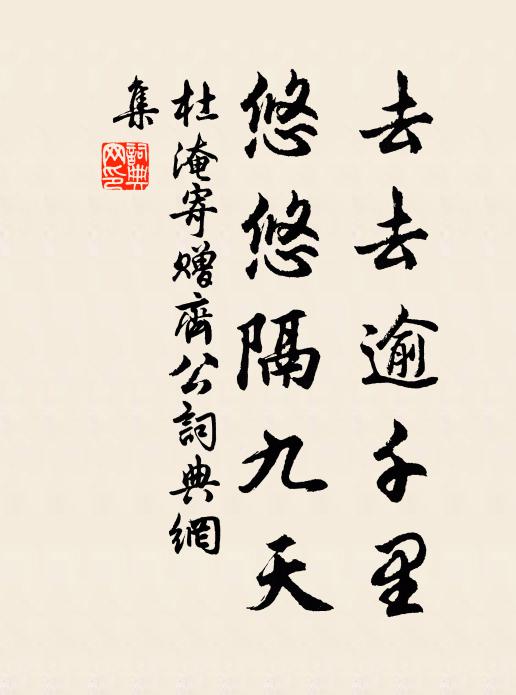 去去逾千里
悠悠隔九天
杜淹寄赠齊公詞典網
集
詞典
网印